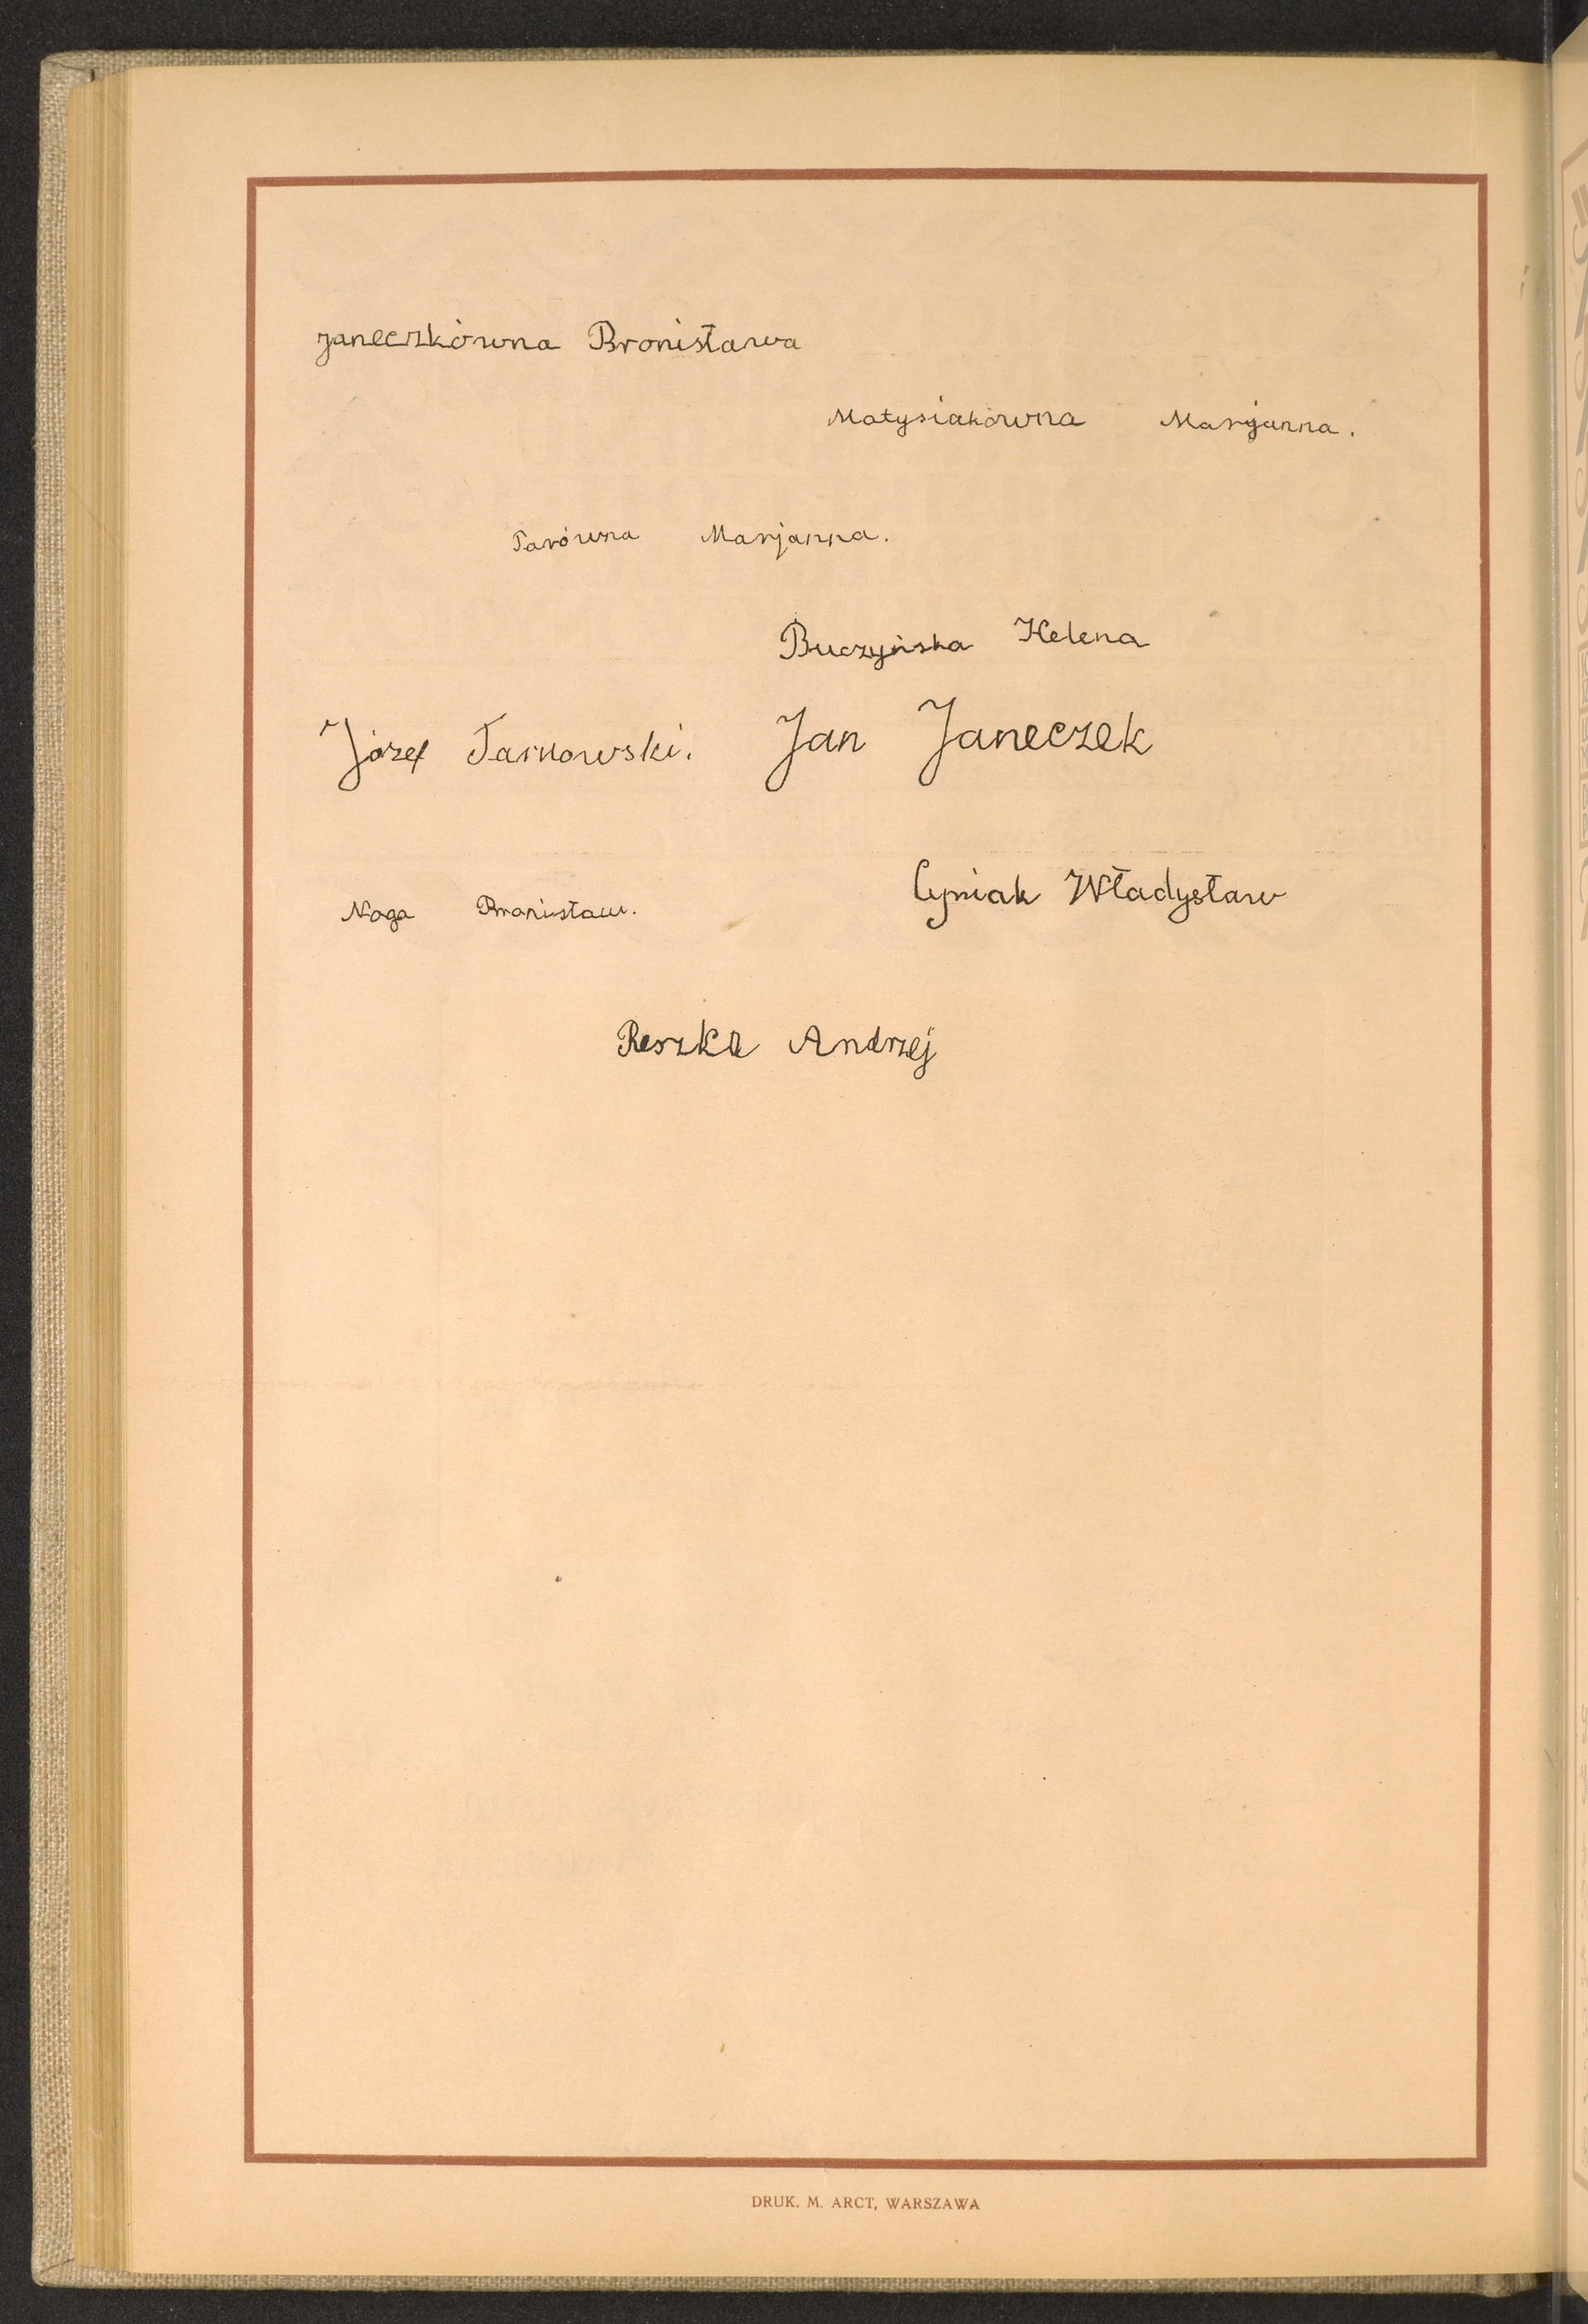 Janeczkówna Bronisława
Matysiakówna Maryjanna.
Tarówna Marjanna.
Buczyńska Helena
Józef Tarnowski. Jan Janeczek
Noga Bronisław. Cypniak Władysław
Reszka Andrzej
DRUK. M. ARCT, WARSZAWA